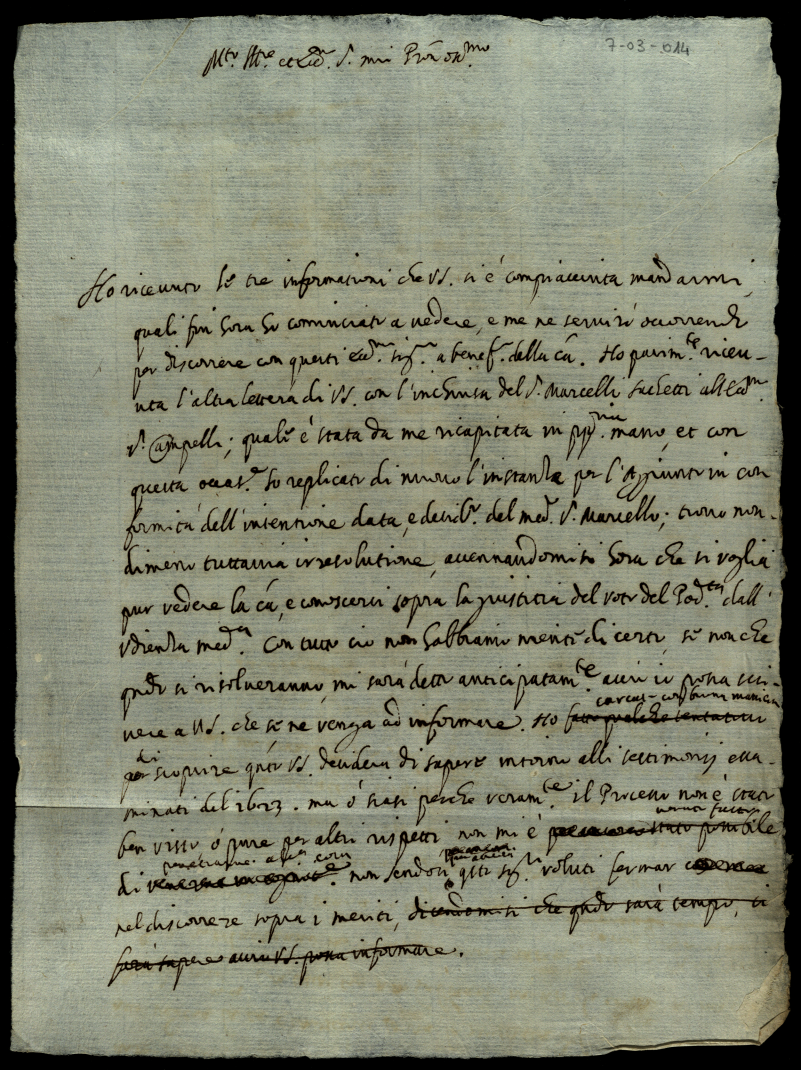 7-03-014
Mto. Illre et Ecc. S. mio Pron oss.mo
Ho riceuuto le tre informationi che VS. si è compiacciuta mandarmi,
quali fin hora ho cominciato a vedere, e me ne seruirò occorrendo
per discorrere con questi ecc.mi sig.ri a benef.o della cã. Ho parim.te riceu-
uta l'altra lettera di VS. con l'inchiusa del S. Marcello Sachetti all'Ecc.mo
S. Campelli; quale è stata da me ricapitata in pp.ria mano, et con
questa occas.e ho replicato di nuouo l'instanza per l'Aggiunto in con
formità dell'intentione data, e desid.o del med.o S. Marcello; trouo non-
dimeno tuttauia irresolutione, accennandomisi hora che si voglia
pur vedere la cã, e conoscerci sopra la giustitia del voto del Pod.tà dall'
vdienza med.a Con tutto ciò non habbiamo niente di certo, se non che
qndo si risolueranno, mi sarà detto anticipatam.te acciò io possa scri-
uere a VS. che se ne venga ad informare. Ho fatto qualche tentatiuo
cercato con buona maniera
di
per scoprire qnto VS. desidera di sapere intorno alli testimonij essa-
minati del 1623. ma ò siasi perche veram.te il Processo non è stato
ben visto ò pure per altri rispetti non mi è stato possibile
di penetrarne
non sendosi qsti sig.ri voluti fermar
nel discorrere sopra i meriti, dicendomisi che qndo sarà tempo, si
farà sapere acciò VS. possa informare.